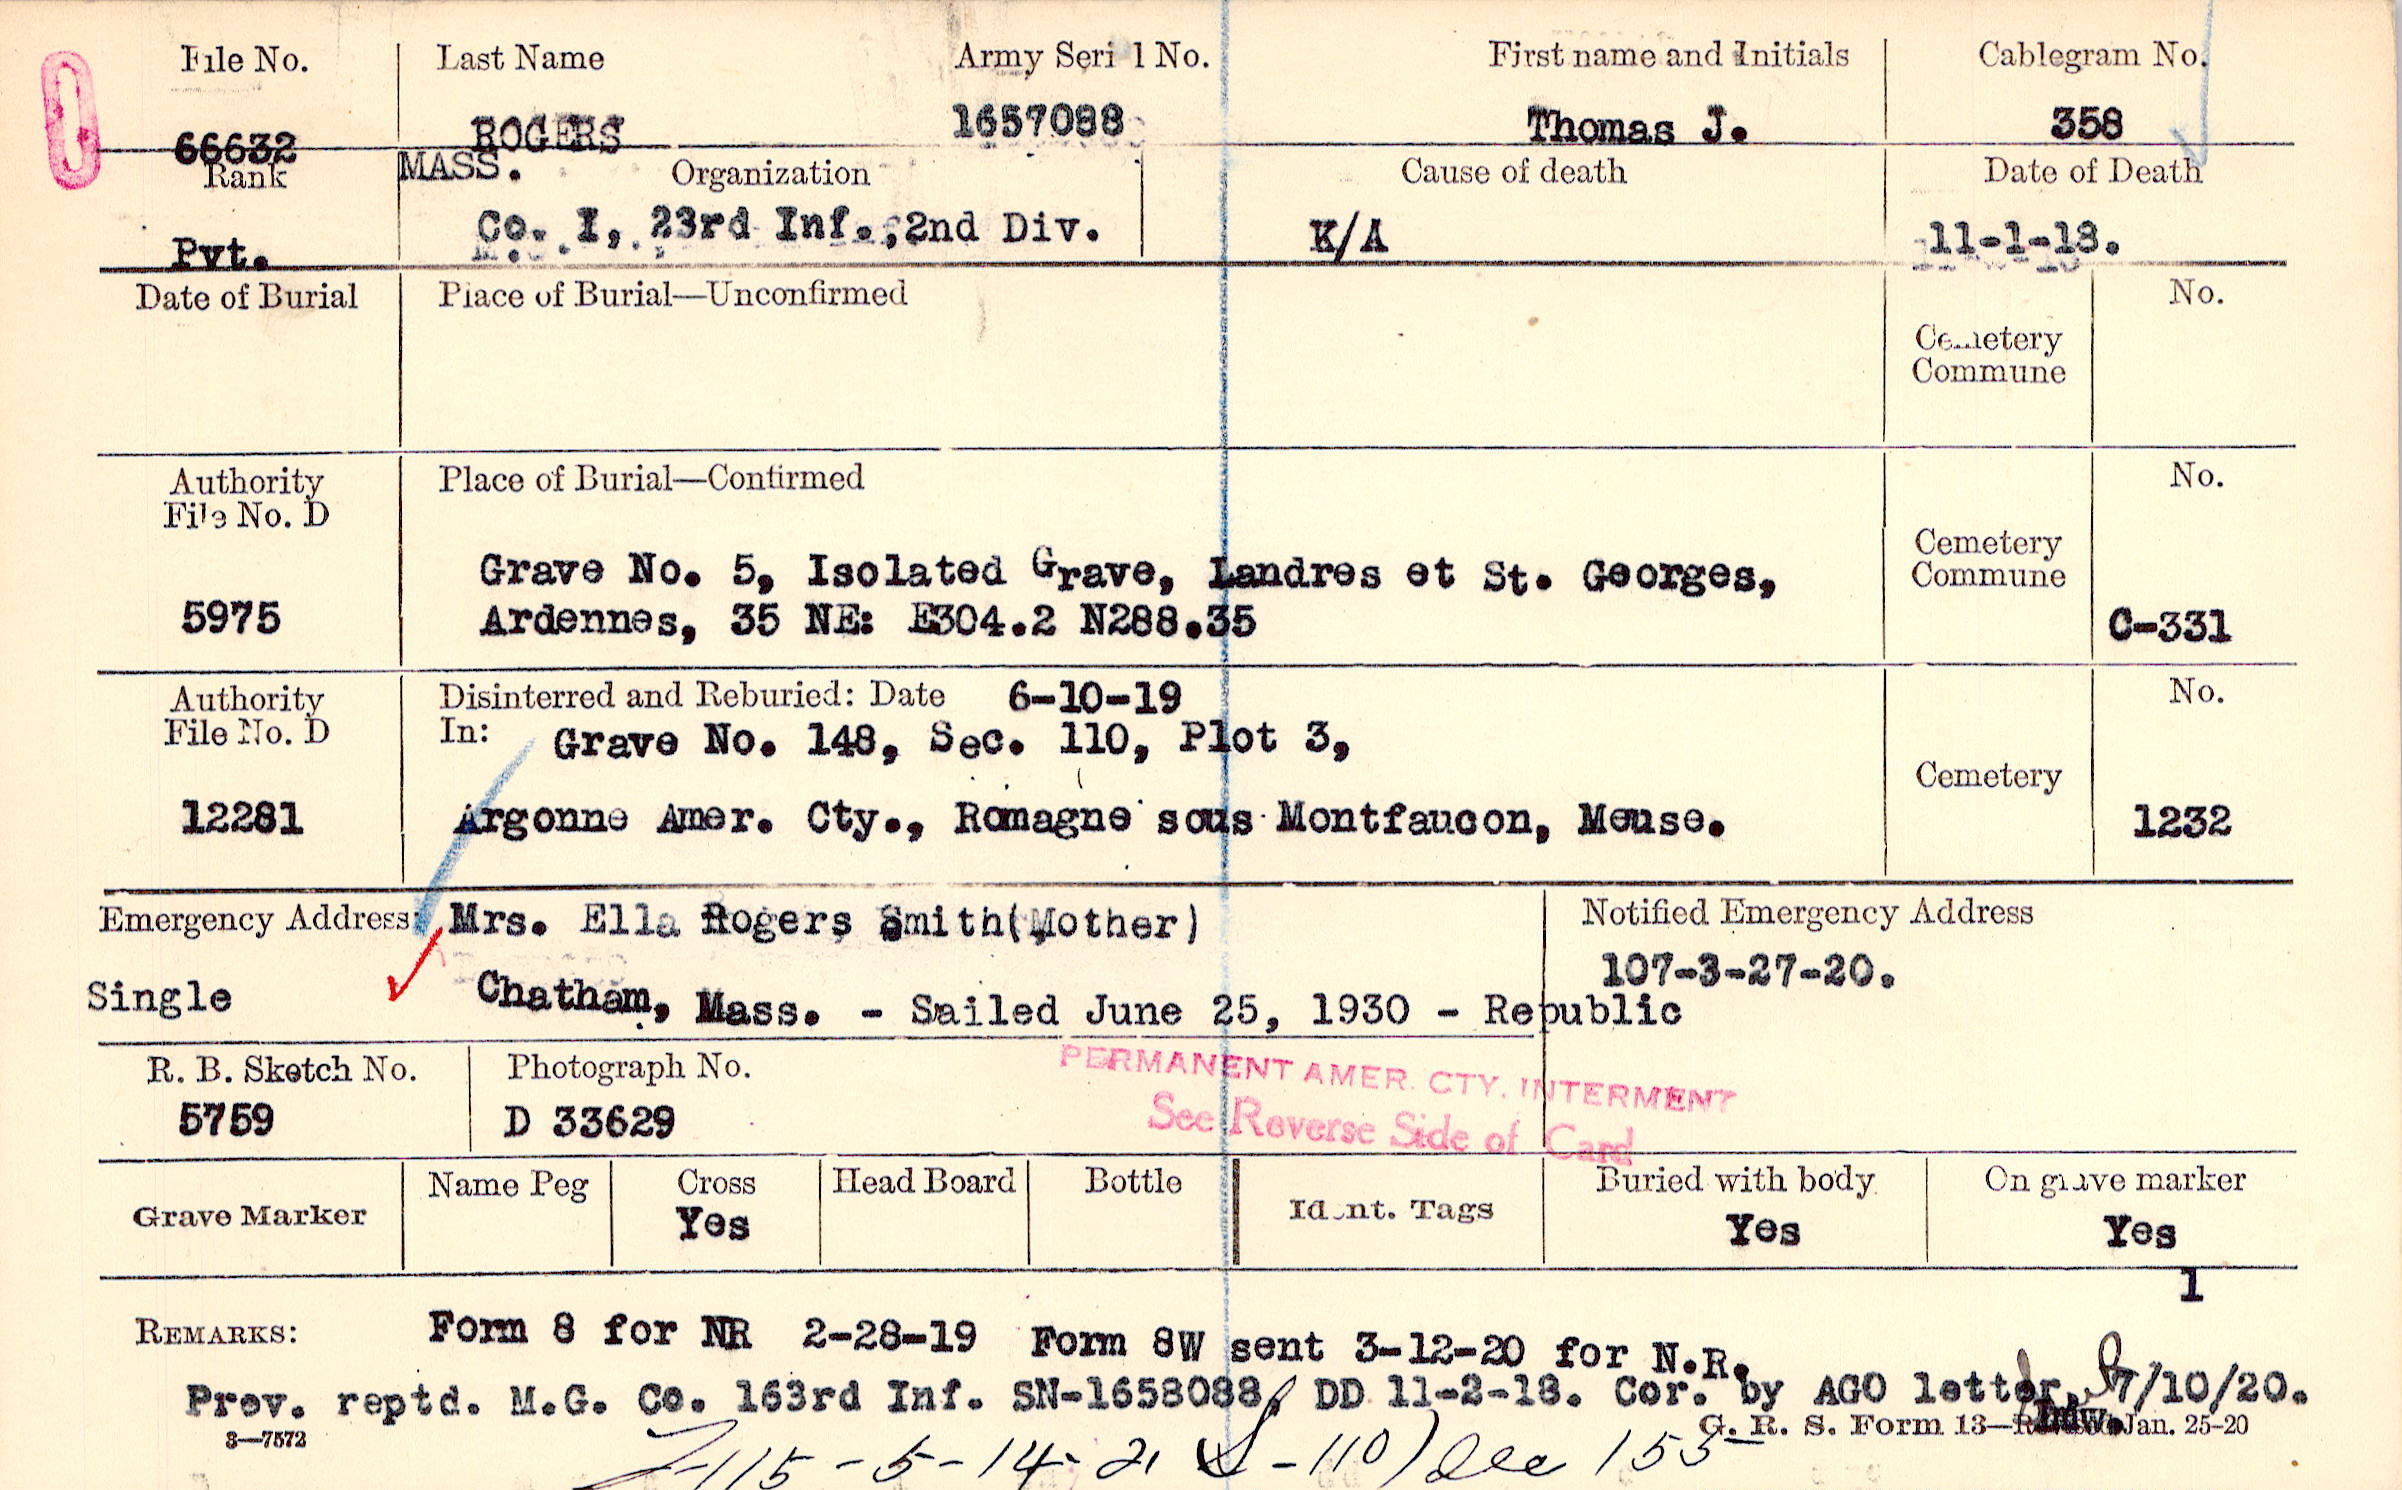 File No. Last Name Army Seri l No. First name and Initials Cablegram No.
66632 ROGERS 1657088 Thomas J. 358
Rank MASS. Organization Cause of death Date of Death
Pvt. Co. I, 23rd Inf., 2nd Div. K/A 11-1-18.
Date of Burial Place of Burial—Unconfirmed No.
Cemetery
Commune
Authority Place of Burial—Confirmed No.
File No. D
Cemetery
Grave No. 5, Isolated Grave, Landres et St. Georges, Commune
5975 Ardennes, 35 NE: E304.2 N288.35 C-331
Authority Disinterred and Reburied: Date 6-10-19 No.
File No. D In: Grave No. 148, Sec. 110, Plot 3,
Cemetery
12281 Argonne Amer. Cty., Romagne sous Montfaucon, Meuse. 1232
Emergency Address: Mrs. Ella Rogers Smith(Mother) Notified Emergency Address
107-3-27-20.
Single Chatham, Mass. - Sailed June 25, 1930 - Republic
R. B. Sketch No. Photograph No. PERMANENT AMER. CTY. INTERMENT
5759 D 33629 See Reverse Side of Card
Name Peg Cross Head Board Bottle Buried with body On grave marker
Grave Marker Yes Ident. Tags Yes Yes
1
REMARKS: Form 8 for NR 2-28-19 Form 8W sent 3-12-20 for N.R.
Prev. reptd. M.G. Co. 163rd Inf. SN-1658088, DD 11-2-18. Cor. by AGO letter, 7/10/20.
3—7572 G. R. S. Form 13— Jan. 25-20
-115-5-14-21 -110) Dec 155